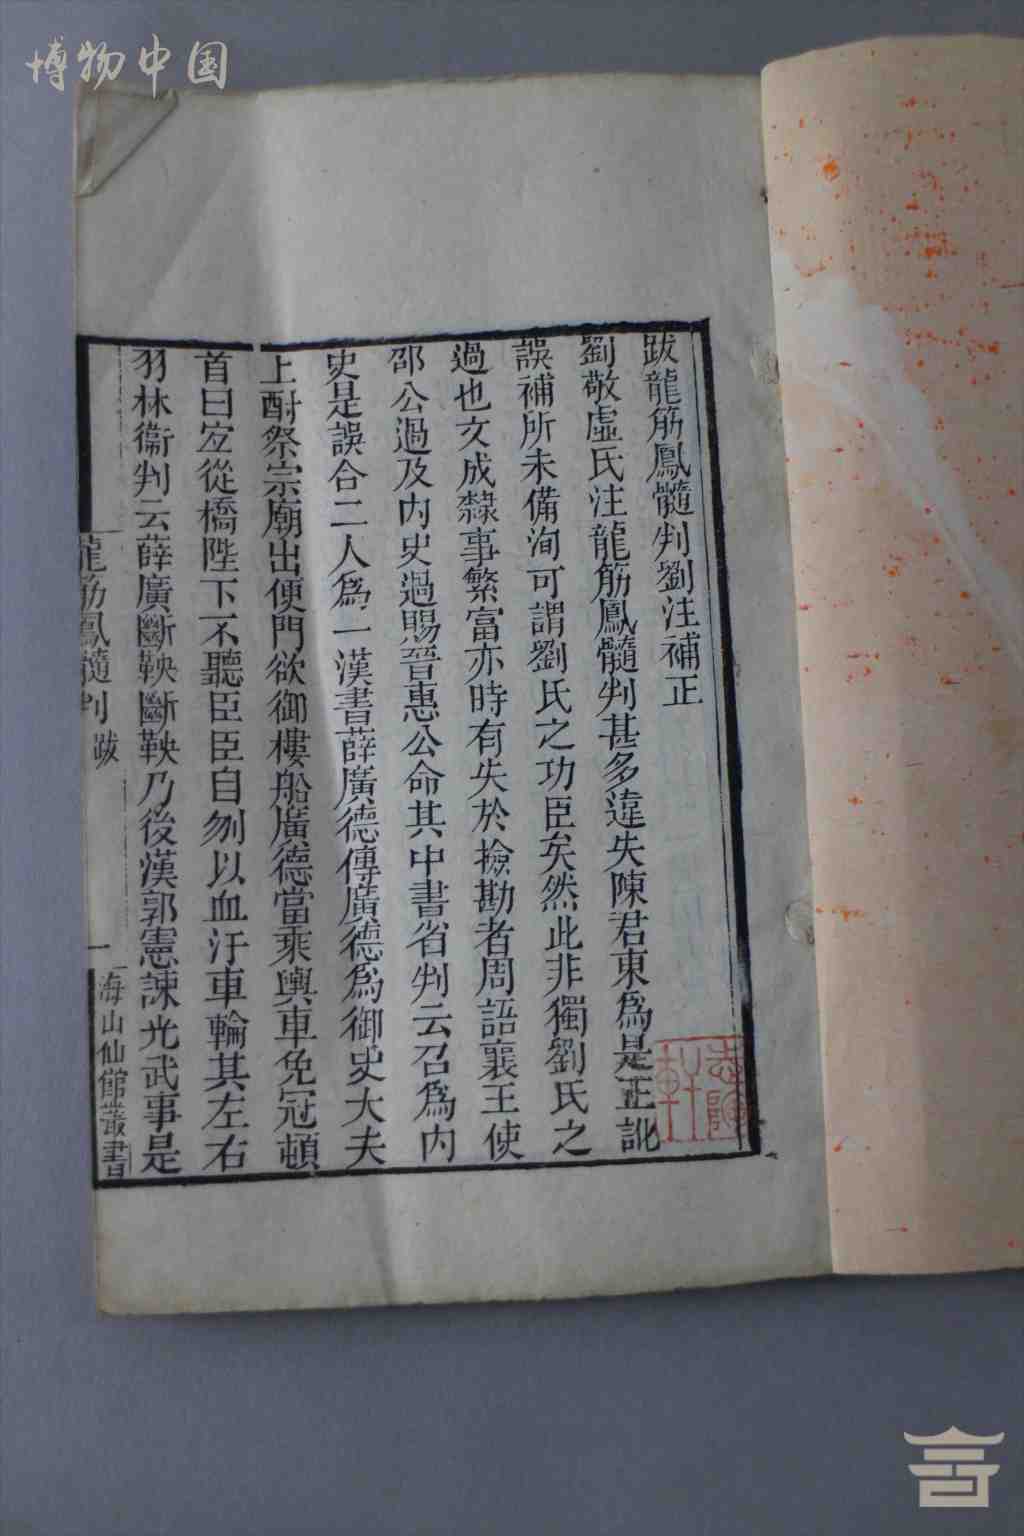 博物中国
跋龍筋鳳髓判劉注補正
劉敬虛氏注龍筋鳳髓判甚多違失陳君東為是正訛
誤補所未備洵可謂劉氏之功臣矣然此非獨劉氏之
過也文成隸事繁富亦時有失於撿勘者周語襄王使
邵公過及内史過賜晉惠公命其中書省判云召為内
史是誤合二人為一漢書薛廣德傳廣德為御史大夫
上酎祭宗廟出便門欲御樓船廣德當乘輿車免冠頓
首曰宜從橋陛下不聽臣臣自刎以血汙車輪其左右
羽林衞判云薛廣斷鞅斷鞅乃後漢郭憲諫光武事是
龍筋鳳髓判 跋
一
海山仙館叢書